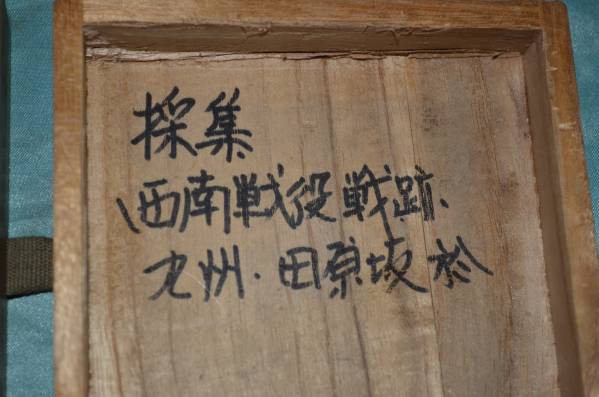 採集
西南戦役戦跡.
九州・田原坂於